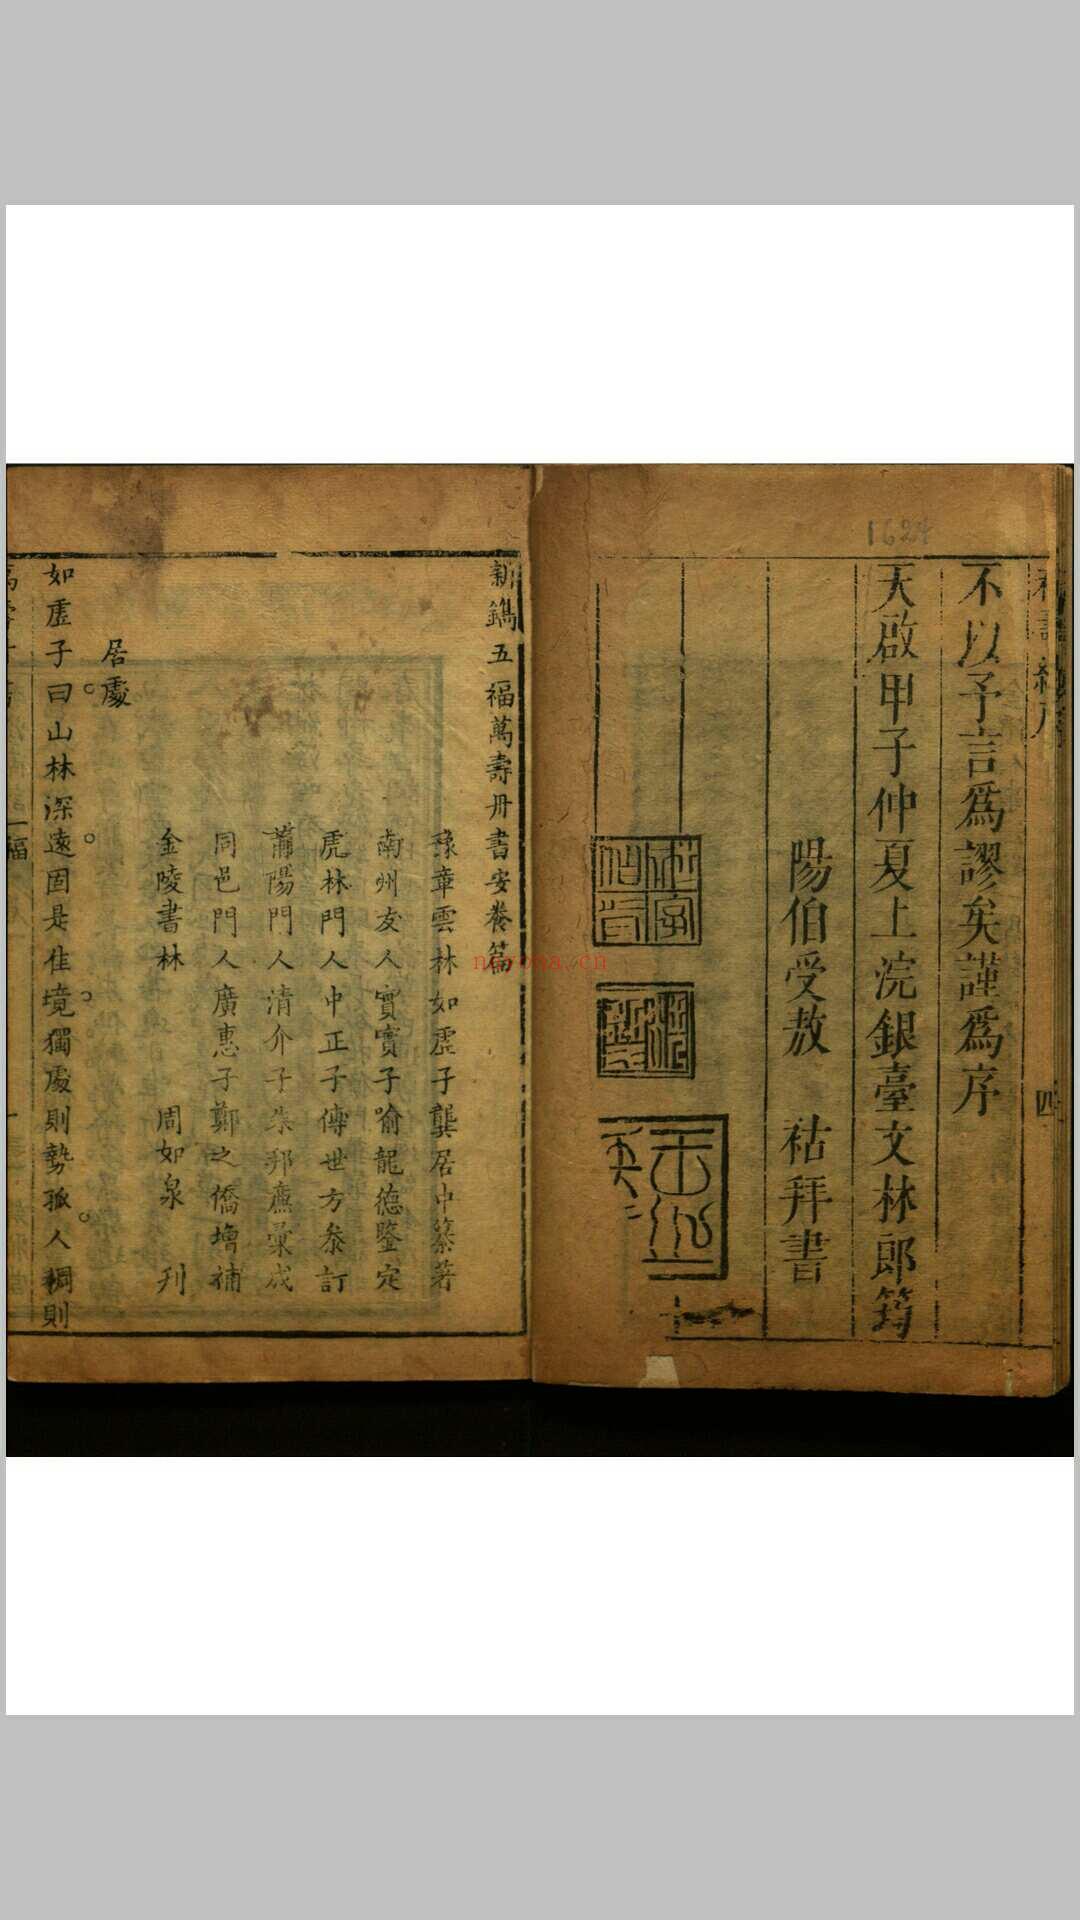 1624
不以予言爲謬矣謹爲序
天啟甲子仲夏上浣銀臺文林郎筠
陽伯受敖 祜拜書
四
新鐫五福萬壽丹書安養篇
豫章雲林如虛子龔居中纂著
南州友人實實子喻龍德鑒定
虎林門人中正子傅世方參訂
莆陽門人清介子朱邦廉彙成
同邑門人廣惠子鄭之僑增補
金陵書林 周如泉 刋
居處
如虛子曰山林深遠固是佳境獨處則勢孤人稠則
noyona.cn